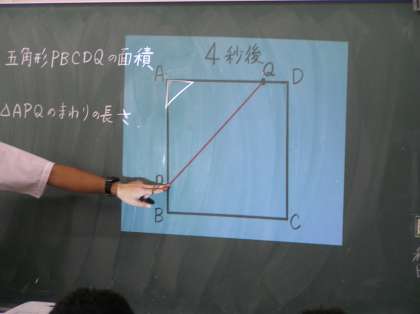 五角形PBCDQの面積
4秒後
A
Q
D
△APQのまわりの長さ
P
B
C